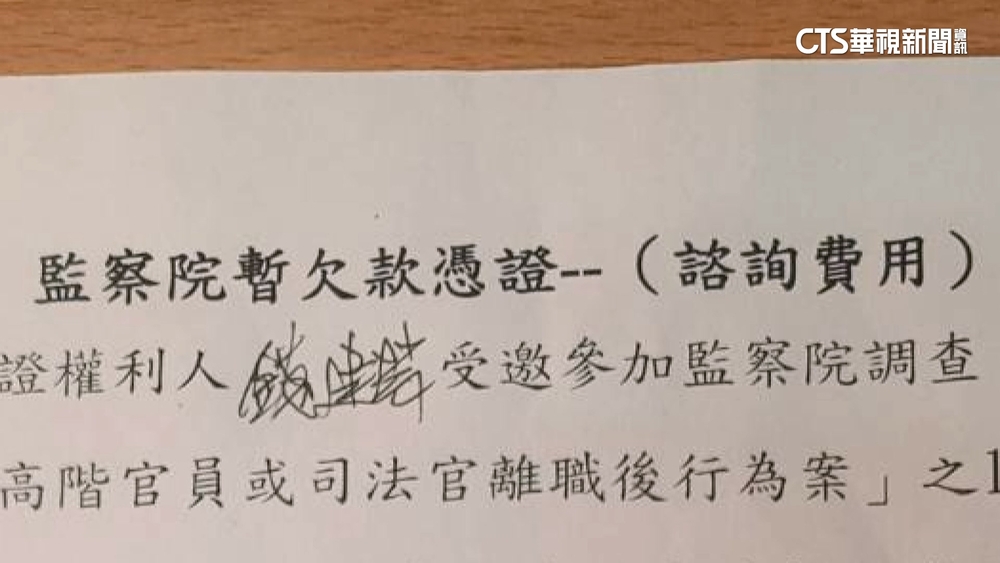 CTS華視新聞資訊
監察院暫欠款憑證--（諮詢費用）
證權利人錢建榮受邀參加監察院調查
高階官員或司法官離職後行為案」之1